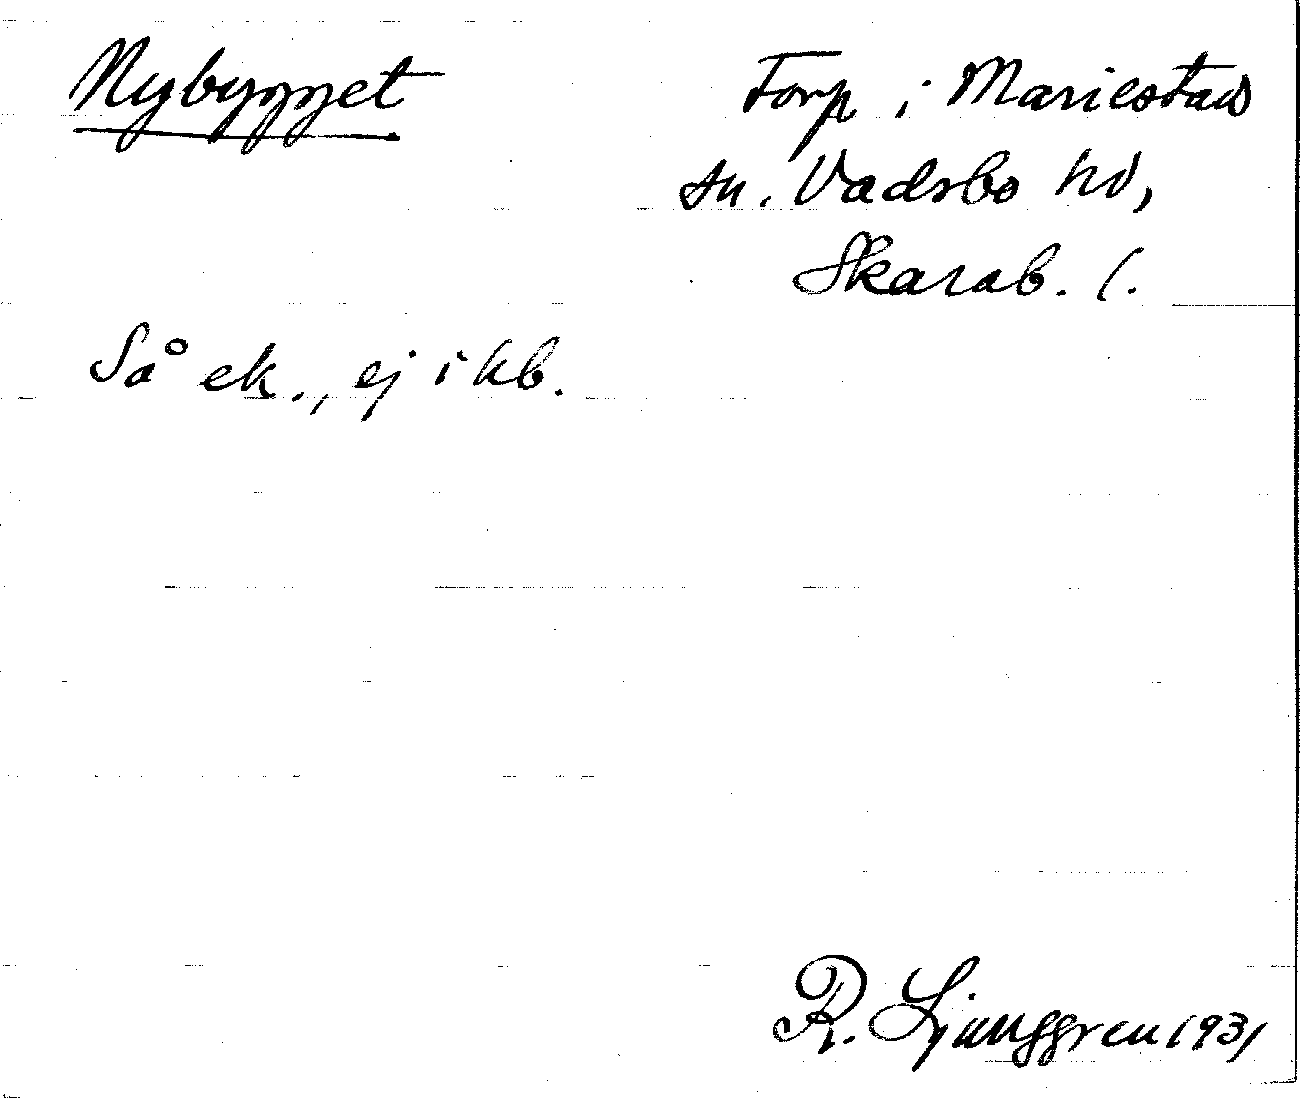 Nybygget
Torp i Mariestads
sn. Vadsbo hd,
Skarab. l.
Så ek., ej i kb.
R. Ljunggren 1931